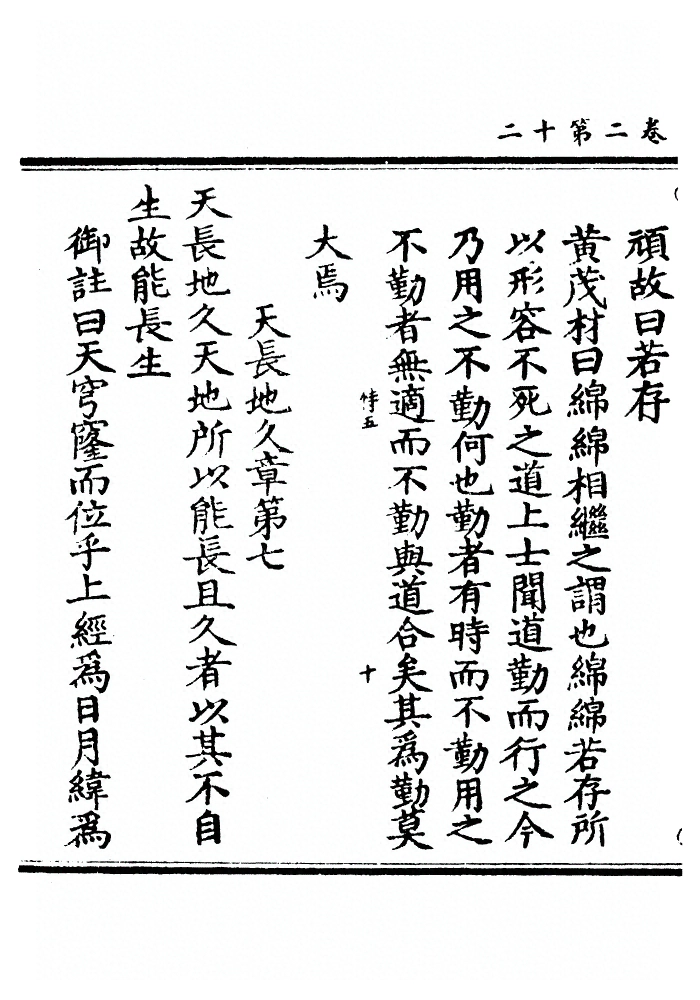 卷二第十二
頑故曰若存
黄茂材曰綿綿相繼之謂也綿綿若存所
以形容不死之道上士聞道勤而行之今
乃用之不勤何也勤者有時而不勤用之
不勤者無適而不勤與道合矣其爲勤莫
特五
十
大焉
天長地久章第七
天長地久天地所以能長且久者以其不自
生故能長生
御註曰天穹窿而位乎上經爲日月緯爲